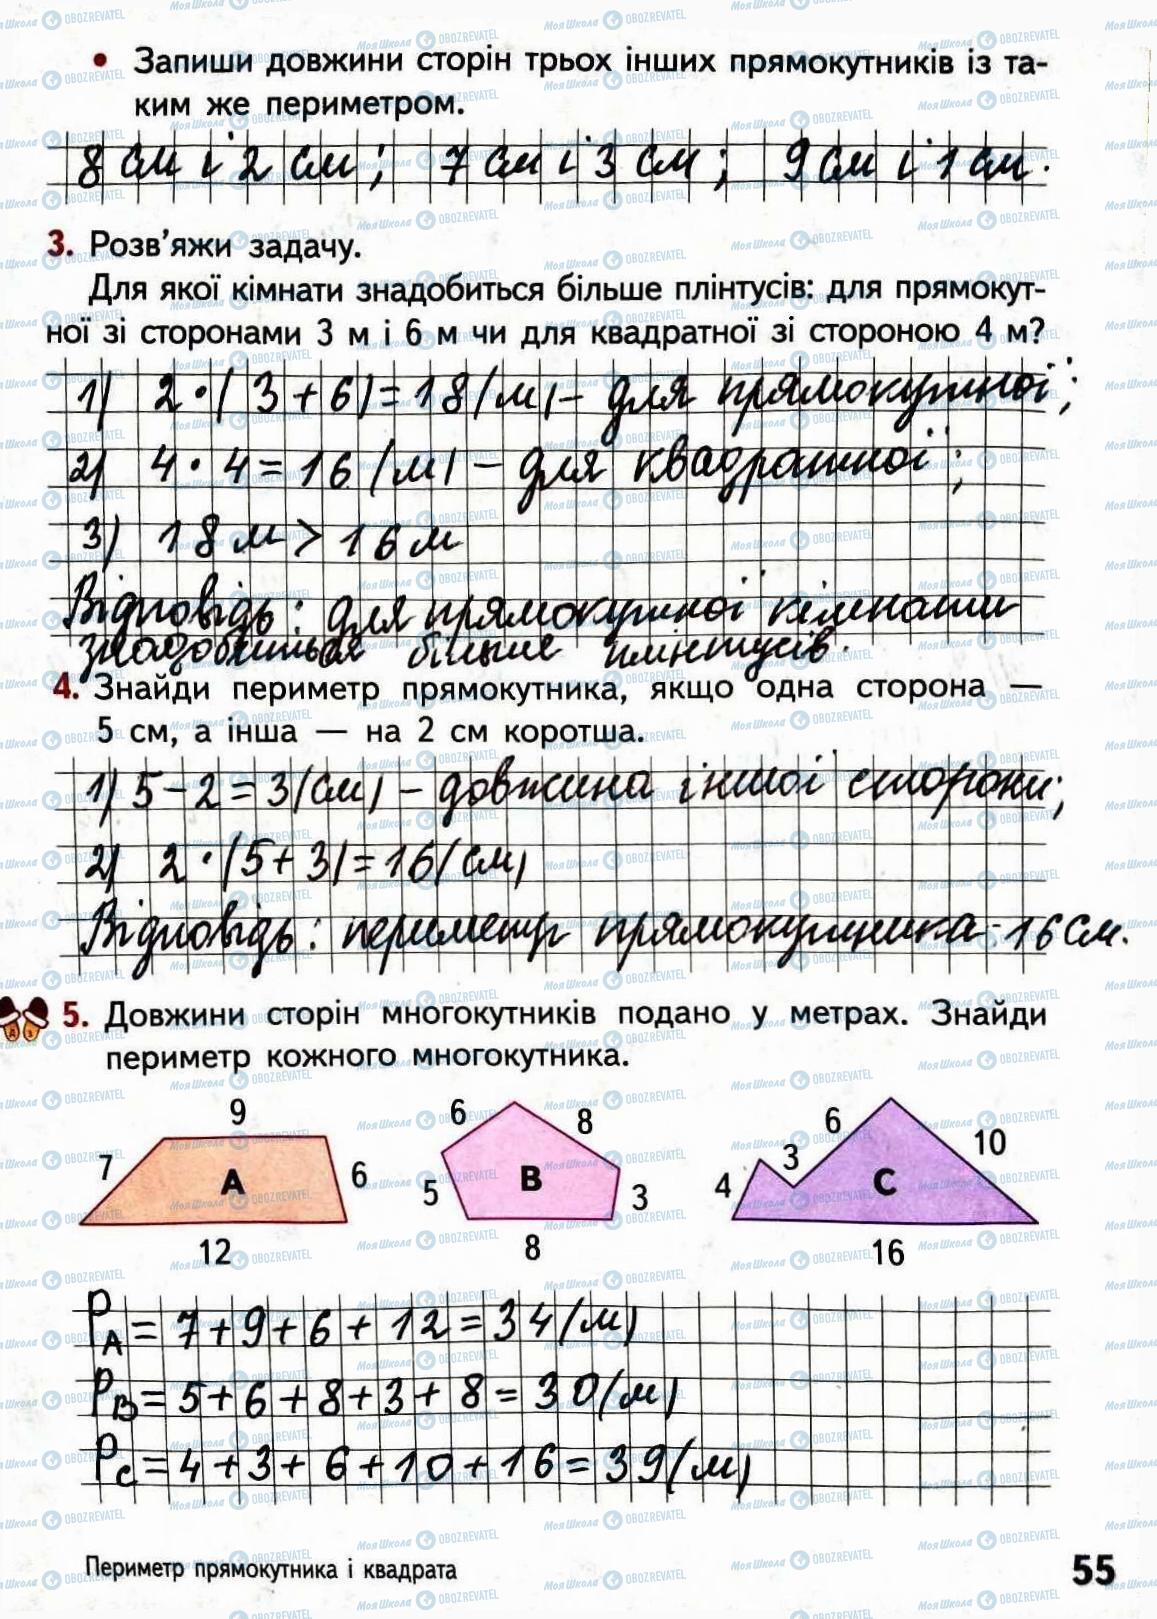 • Запиши довжини сторін трьох інших прямокутників із та-
ким же периметром.
8 см і 2 см; 7 см і 3 см; 9 см і 1 см.
3. Розв'яжи задачу.
Для якої кімнати знадобиться більше плінтусів: для прямокут-
ної зі сторонами 3 м і 6 м чи для квадратної зі стороною 4 м?
1) 2·(3+6)=18(м) – для прямокутної;
2) 4·4=16(м) – для квадратної;
3) 18м > 16м
Відповідь: для прямокутної кімнати
знадобиться більше плінтусів.
4. Знайди периметр прямокутника, якщо одна сторона —
5 см, а інша — на 2 см коротша.
1) 5–2=3(см) – довжина іншої сторони;
2) 2·(5+3)=16(см)
Відповідь: периметр прямокутника - 16 см.
5. Довжини сторін многокутників подано у метрах. Знайди
периметр кожного многокутника.
9
7
A
6
12
6
8
5
B
3
8
6
3
10
4
C
16
PA=7+9+6+12=34(м)
PB=5+6+8+3+8=30(м)
PC=4+3+6+10+16=39(м)
Периметр прямокутника і квадрата
55
МояШкола OBOZREVATEL